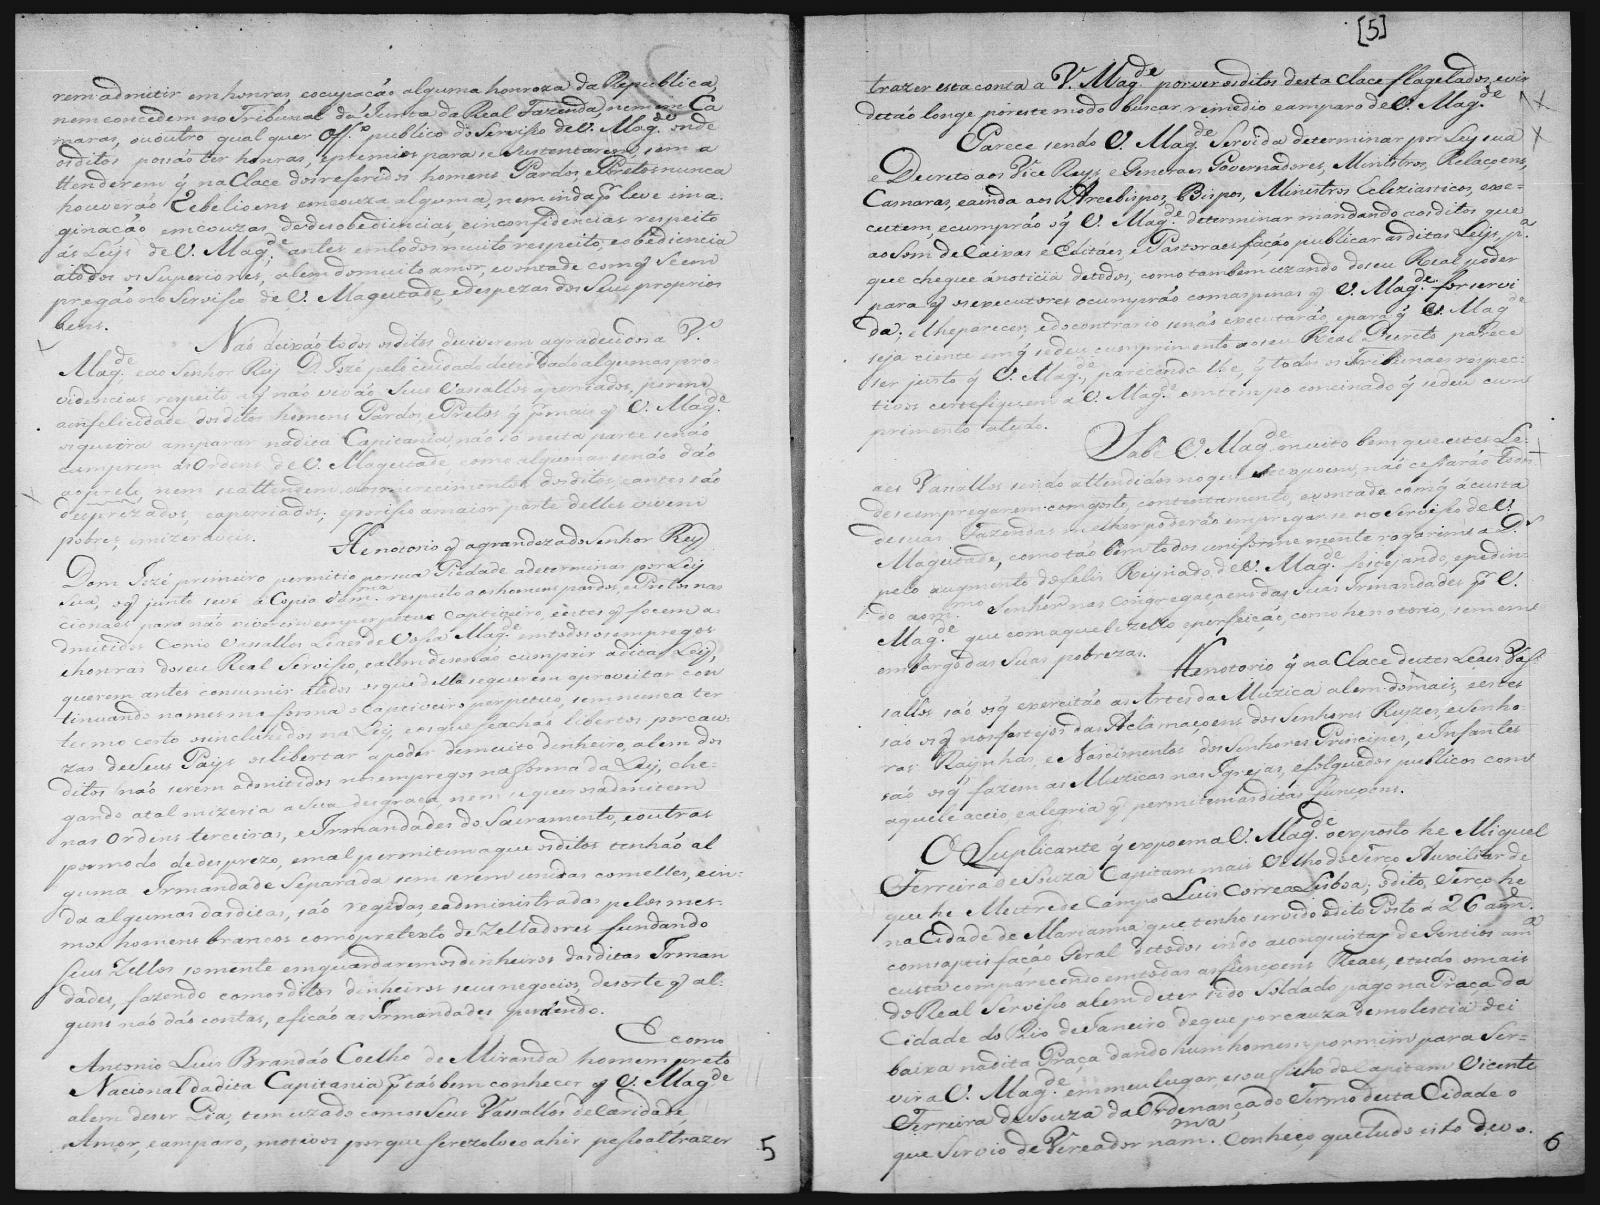 rem admitir em honras, e ocupação alguma honroza da Republica,
nem concedem no Tribunal da Junta da Real Fazenda, nem em Ca
maras, ou outro qual quer Off.º publico do Serviço de V. Mag.de onde
os ditos possão ter honras, e premios para se sustentarem, sem a
ttenderem q̃ na Clace dos referidos homens Pardos, e Pretos nunca
houverão Rebelioens em couza alguma, nem inda p.r leve ima
ginação em couzas de desobediencias, e inconfidencias respeito
ás Leys de V. Mag.de; antes em todos muito respeito, e obediencia
a todos os Superiores, alem do muito amor, e vontade com q̃ se em
pregão no Serviço de V. Magestade, e despezas dos seus proprios
bens.
Não deixão todos os ditos de viverem agradecidos a V.
Mag.de e ao Senhor Rey D. Jozé pelo cuidado de ter dado algumas pro
videncias respeito a q̃ não vivão Seus Vassallos apremados, porem
a infelicidade dos ditos homens Pardos, e Pretos q̃ p.r mais q̃ V. Mag.de
os queira amparar na dita Capitania, não só nesta parte se não
cumprem as Ordens de V. Magestade, como algumas se não dão
nem se attendem aos merecimentos dos ditos, e antes são
desprezados, e apremiados; e por isso a maior parte delles vivem
pobres, e mizeraveis.
He notorio q̃ a grandeza do Senhor Rey
Dom Jozé primeiro permitio por sua Piedade a determinar por Ley
Sua, o q̃ junto se vê a Copia da m.ma respeito aos homens pardos, e Pretos nas
cionaes para não viverem em perpetuo Captiveiro, e estes q̃ focem a
dmitidos como Vassallos Leaes de Vossa Mag.de em todos os empregos
e honras do seu Real Serviço, e alem de se não cumprir a dita Ley,
querem antes consumir a todos os que della se querem aproveitar con
tinuando na mesma forma o Captiveiro perpetuo, sem nunca ter
termo certo os incluidos na Ley, e os que se achão libertos por cau
zas de Seus Pays os libertar a poder de muito dinheiro, alem dos
ditos não serem admitidos nos empregos na forma da Ley, che-
gando a tal mizeria a sua desgraça, nem se quer os admitem
nas Ordens terceiras, e Irmandades do Sacramento, e outras
por modo de desprezo, e mal permitem a que os ditos tenhão al
guma Irmandade Separada sem serem unidas com elles, e ain-
da algumas das ditas, são regidas, e administradas pelos mes-
mos homens brancos com o pretexto de Zelladores fundando
seus Zellos somente em guardarem os dinheiros das ditas Irman
dades, fazendo com os ditos dinheiros seus negocios, de sorte q̃ al-
guns não dão contas, e ficão as Irmandades perdendo.
E como
Antonio Luis Brandão Coelho de Miranda homem preto
Nacional da dita Capitania p.r tão bem conhecer q̃ V. Mag.de
alem de ser Pia, tem uzado com os Seus Vassallos de Caridade
Amor, e amparo, motivos porque se rezolveo a hir pessoal trazer
5
[5]
trazer esta conta a V. Mag.de por ver os ditos desta Clace flagelados, e vir
de tão longe por este modo buscar remedio e amparo de V. Mag.de
Parece sendo V. Mag.de Servida determinar por Ley sua
e Decreto aos Vice Reys, e Generaes Governadores, Ministros, Relaçoens,
Camaras, e ainda aos Arcebispos, Bispos, Ministros Ecleziasticos, exe-
cutem, e cumprão o q̃ V. Mag.de determinar mandando aos ditos que
ao Som de Caixas e Editaes, e Pastoraes fação publicar as ditas Leys, p.a
que chegue á noticia de todos, como tambem uzando do seu Real poder
para q̃ os executores o cumprão com as penas q̃ V. Mag.de for servi
da; e lhe parecer, e do contrario se não executarão, e para q̃ V. Mag.de
seja ciente em q̃ se deu cumprimento ao seu Real Decreto parece
ser justo q̃ V. Mag.de, parecendo lhe, q̃ todos os Tribunaes respec-
tivos certefiquem a V. Mag.de em tempo concinado q̃ se deu cum
primento
Sabe V. Mag.de muito bem que estes Le-
aes Vassallos sendo attendidos no que se expoem, não cessarão todos
de se empregarem com gosto, contentamento, e vontade com q̃ á custa
de suas Fazendas melhor poderão empregar se no Serviço de V.
Magestade, como tão bem todos uniformemente rogarem a D.s
pelo augmento do felis Reynado de V. Mag.de festejando, e pedin-
do ao m.mo Senhor nas Congregaçoens das Suas Irmandades p.r V.
Mag.de que com aquele zello e perfeição, como he notorio, sem em
embargo das Suas pobrezas.
He notorio q̃ na Clace destes Leaes Vas-
sallos são os q̃ exercitão as Artes da Muzica alem do mais, e estes
são os q̃ nos festejos das Aclamaçoens dos Senhores Reyzes, e Senho-
ras Raynhas, e Nascimentos dos Senhores Principes, e Infantes
são os q̃ fazem as Muzicas nas Igrejas, e folguedos publicos com
aquele aceio, e alegria q̃ permitem as ditas funçoens.
O Suplicante q̃ expoem a V. Mag.de o exposto he Miguel
Ferreira de Souza Capitam mais Velho do Terço Auxiliar de
que he Mestre de Campo Luis Correa Lisboa; o dito Terço he
na Cidade de Marianna que tenho servido o dito Posto á 26 ann.s
com satisfação Geral de todos indo a conquistas de Gentios a m.a
custa comparecendo em todas as funçoens Reaes, e tudo o mais
do Real Serviço alem de ter sido Soldado pago na Praça da
Cidade do Rio de Janeiro de que por cauza de molestia dei
baixa na dita Praça dando hum homem por mim para Ser-
vir a V. Mag.de em meu lugar, e sou filho do Capitam Vicente
Ferreira de Souza da Ordenança do Termo desta Cidade o
que Sirvio de Vereador na m.ma. Conheço que tudo isto devo.
6